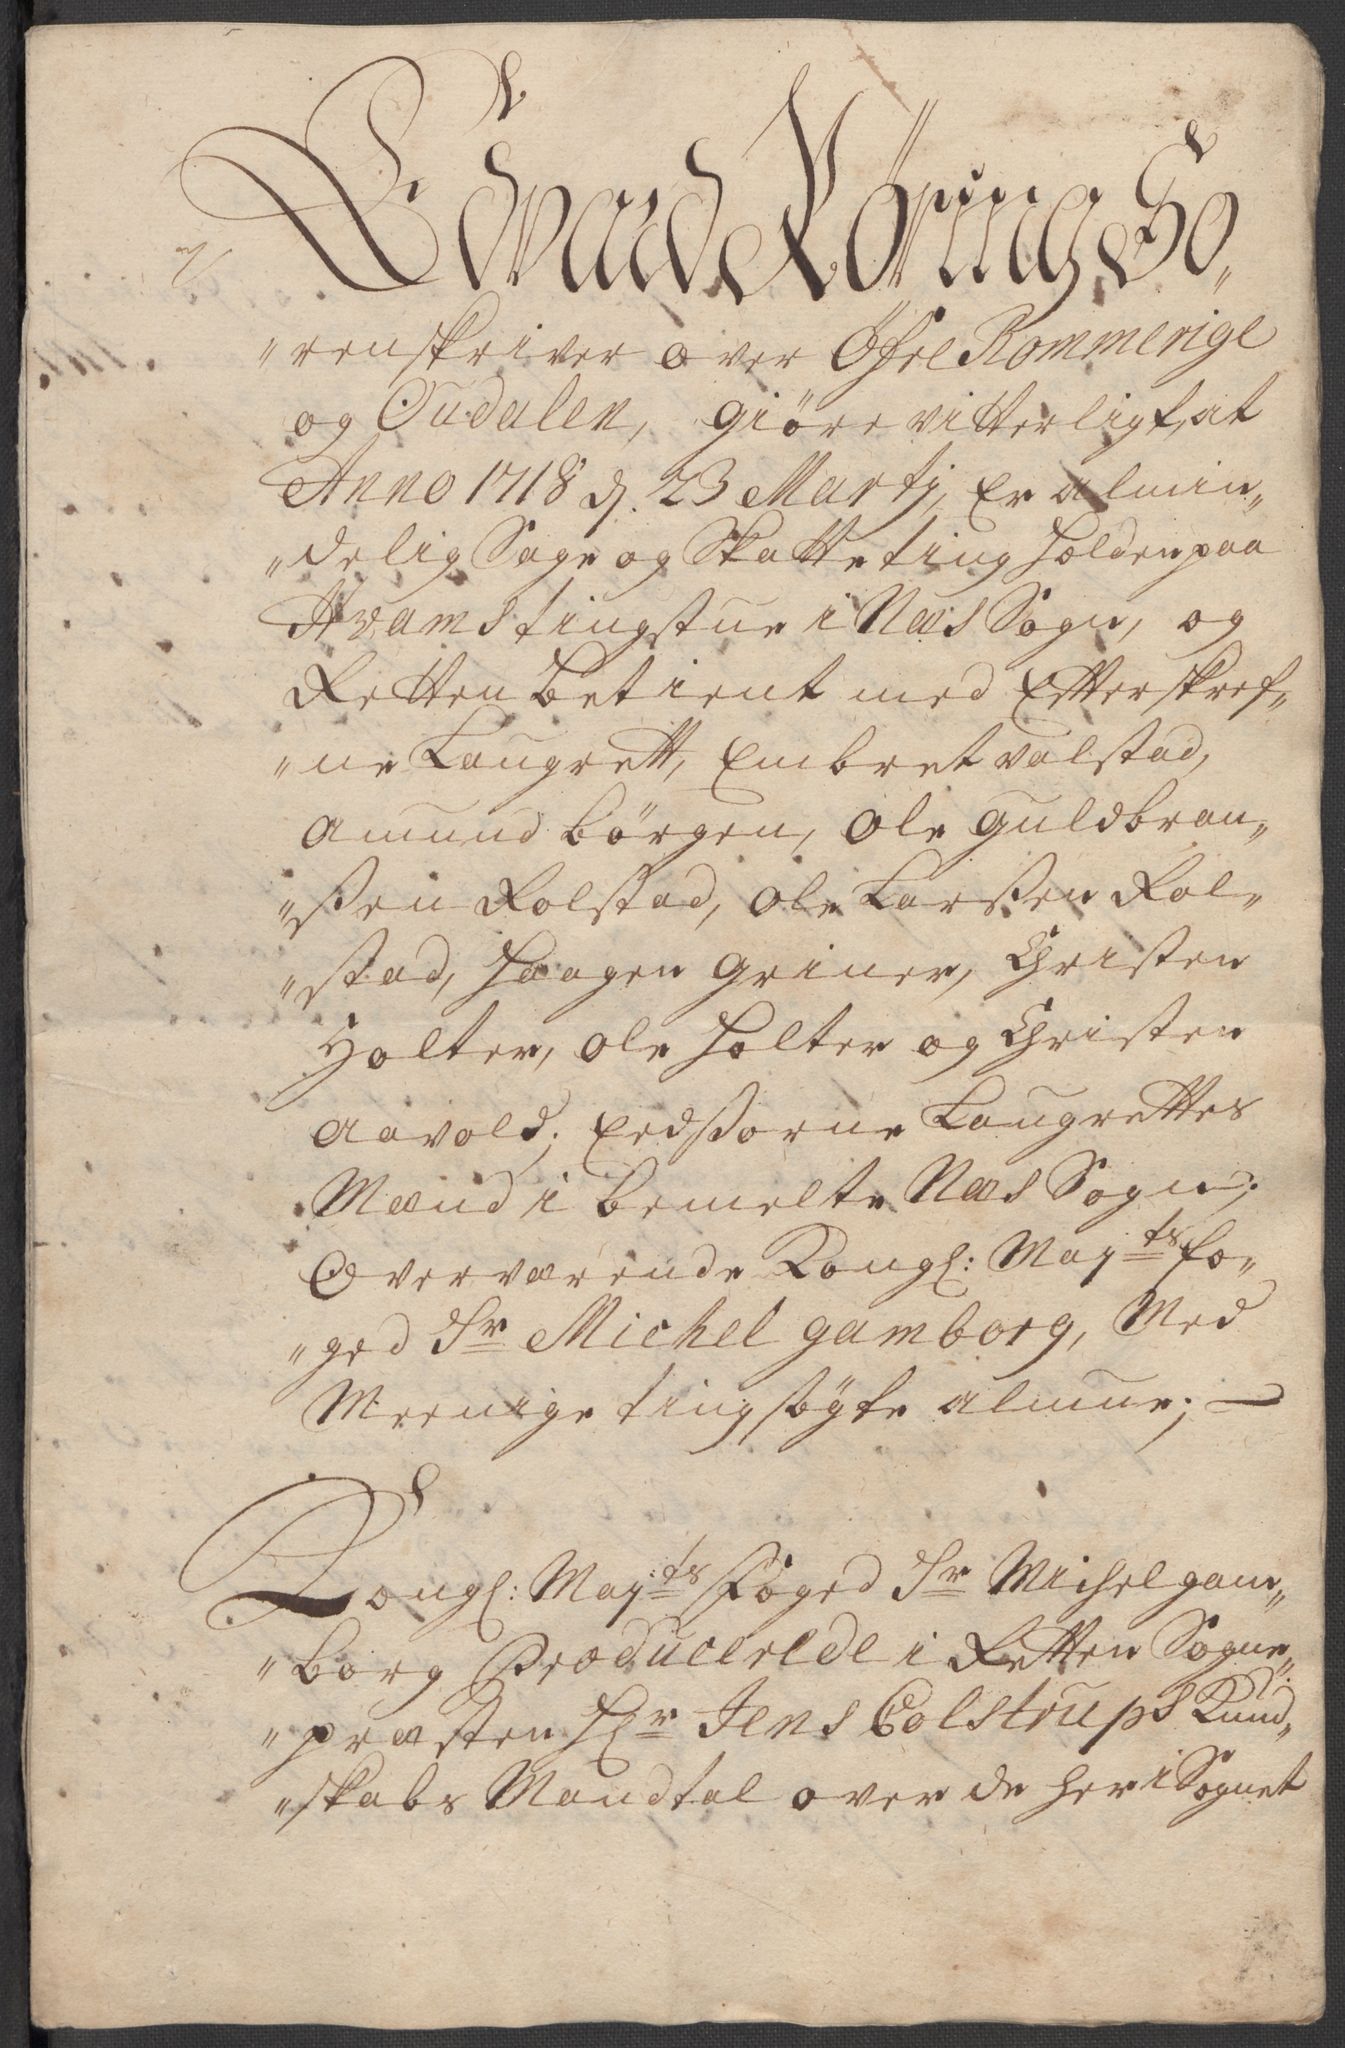 Edvard Röring So„
„renskriver over Öfre Rommerige
og Oudalen, giöre vitterligt, at
Anno 1718 d. 23 Martj, Er almin„
„delig Sage og Skatteting holden paa
Hvams tingstue i Næs Sogn, og
Retten betient med Efterskref„
„ne Laugrett, Embret Valstad,
Amund Börgen, Ole Guldbran„
„ßen Rolstad, Ole Larßen Rol„
„stad, Haagen Griner, Christen
Holter, Ole Holter og Christen
Aavold; Eedsorne Laugrettes
Mænd i bemelte Næs Sogn;
Overværende Kongl: Mayts fo„
„ged Sr Michel Gamborg, Med
Meenige tingsögte Almue;
Kongl: Mayts Foged Sr Michel Gam„
„borg Producerede i Retten Sogne„
„præsten Hr Jens Colstrups Kund„
„skabs Mandtal over de her i Sognet